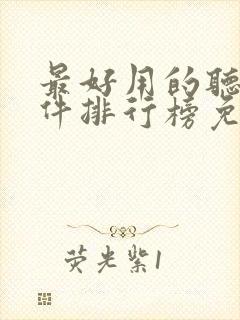 最好用的聽
件排行榜免
荧光紫1